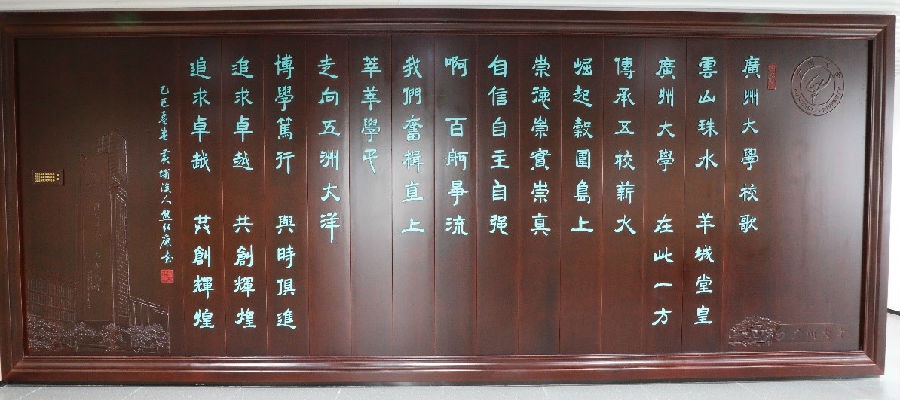 廣州大學校歌
雲山珠水 羊城堂皇
廣州大學 在此一方
傳承五校薪火
崛起穀圍島上
崇德崇實崇真
自信自主自强
啊 百舸爭流
我們奮楫直上
莘莘學子
走向五洲大洋
博學篤行 與時俱進
追求卓越 共創輝煌
追求卓越 共創輝煌